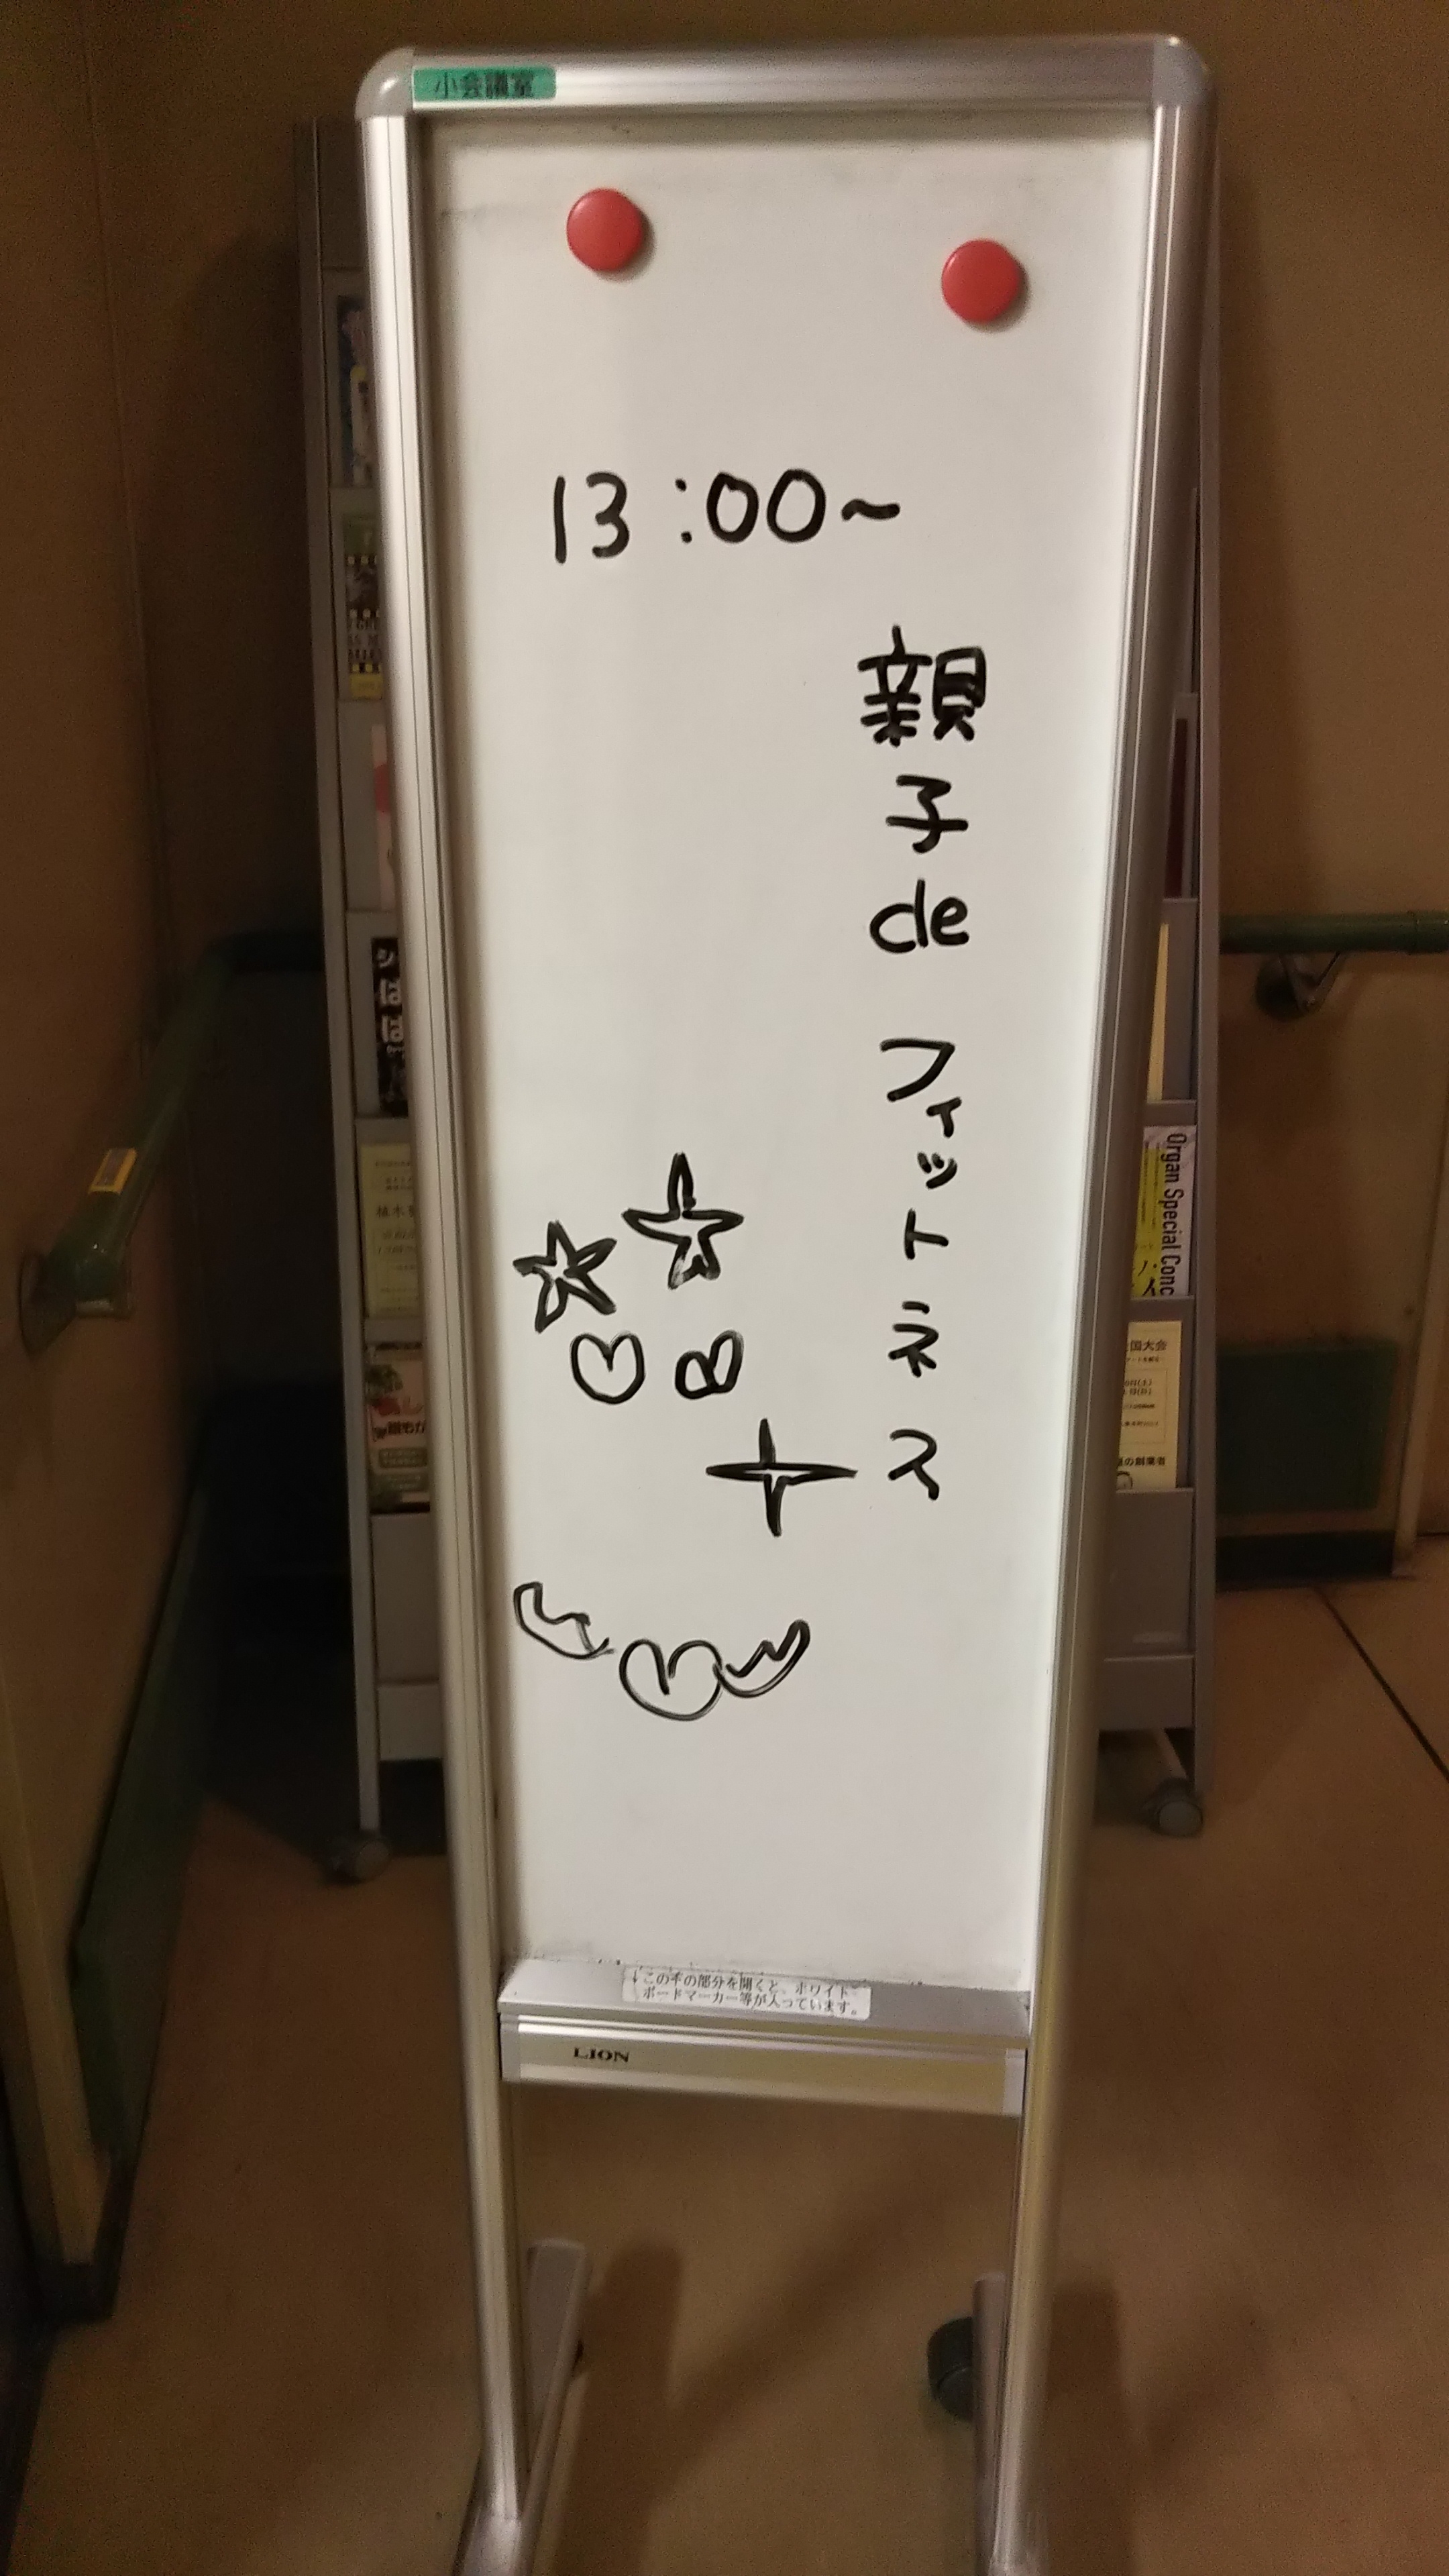 小会議室
13:00~
親子deフィットネス
↓この手の部分を開くと、ホワイト
ボードマーカー等が入っています。
LION
Organ Special Conc
国大会
の創業者